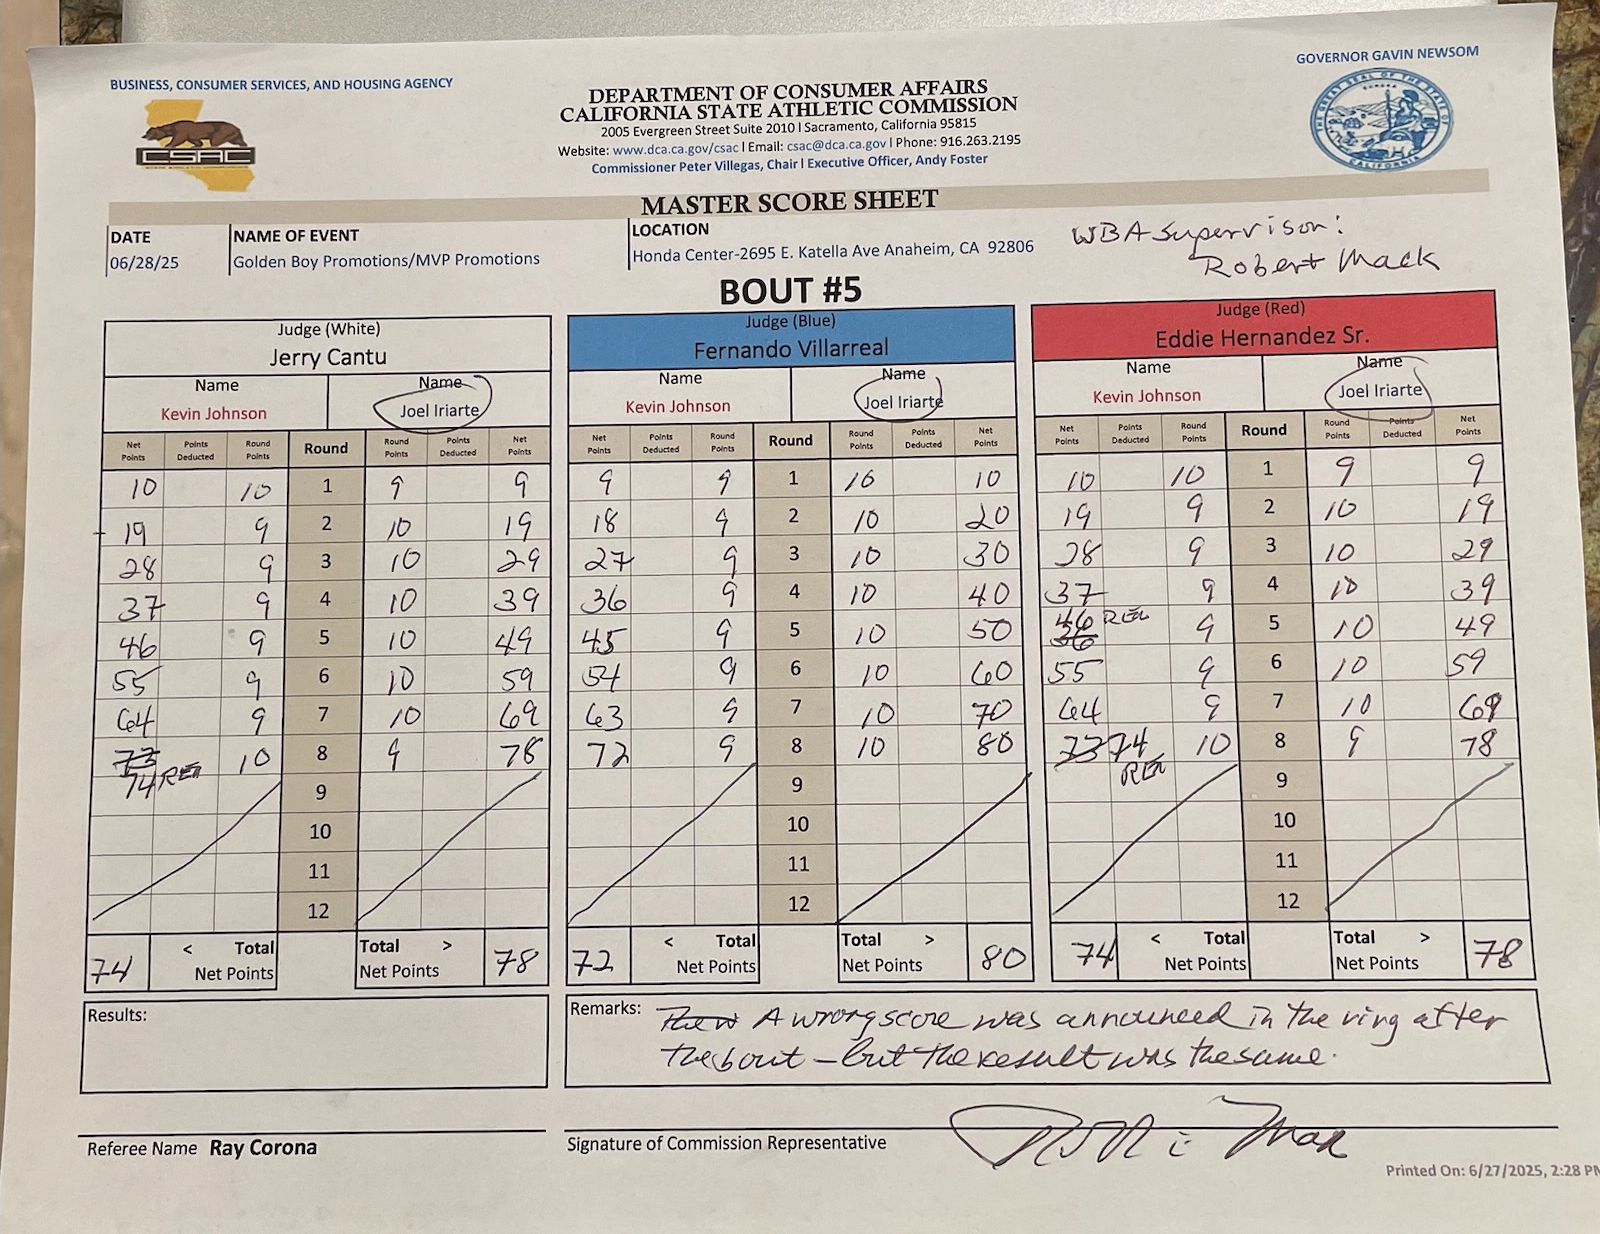 BUSINESS, CONSUMER SERVICES, AND HOUSING AGENCY
GOVERNOR GAVIN NEWSOM
CSAC
DEPARTMENT OF CONSUMER AFFAIRS
CALIFORNIA STATE ATHLETIC COMMISSION
2005 Evergreen Street Suite 2010 I Sacramento, California 95815
Website: www.dca.ca.gov/csac I Email: csac@dca.ca.gov I Phone: 916.263.2195
Commissioner Peter Villegas, Chair I Executive Officer, Andy Foster
MASTER SCORE SHEET
DATE NAME OF EVENT LOCATION
06/28/25 Golden Boy Promotions/MVP Promotions Honda Center-2695 E. Katella Ave Anaheim, CA 92806
WBA Supervisor:
Robert Mack
BOUT #5
Judge (White) Judge (Blue) Judge (Red)
Jerry Cantu Fernando Villarreal Eddie Hernandez Sr.
Name Name Name Name Name Name
Kevin Johnson Joel Iriarte Kevin Johnson Joel Iriarte Kevin Johnson Joel Iriarte
Net Points Points Deducted Round Points Round Round Points Points Deducted Net Points Net Points Points Deducted Round Points Round Round Points Points Deducted Net Points Net Points Points Deducted Round Points Round Round Points Points Deducted Net Points
10 10 1 9 9 9 9 1 10 10 10 10 1 9 9
19 9 2 10 19 18 9 2 10 20 19 9 2 10 19
28 9 3 10 29 27 9 3 10 30 28 9 3 10 29
37 9 4 10 39 36 9 4 10 40 37 9 4 10 39
46 9 5 10 49 45 9 5 10 50 46 36 9 5 10 49
55 9 6 10 59 54 9 6 10 60 55 9 6 10 59
64 9 7 10 69 63 9 7 10 70 64 9 7 10 69
73 10 8 9 78 72 9 8 10 80 73 74 10 8 9 78
74
9 9 9
10 10 10
11 11 11
12 12 12
74 < Total Net Points Total > Net Points 78 72 < Total Net Points Total > Net Points 80 74 < Total Net Points Total > Net Points 78
Results:
Remarks: A wrong score was announced in the ring after
the bout – but the result was the same.
Referee Name Ray Corona
Signature of Commission Representative
Printed On: 6/27/2025, 2:28 PM